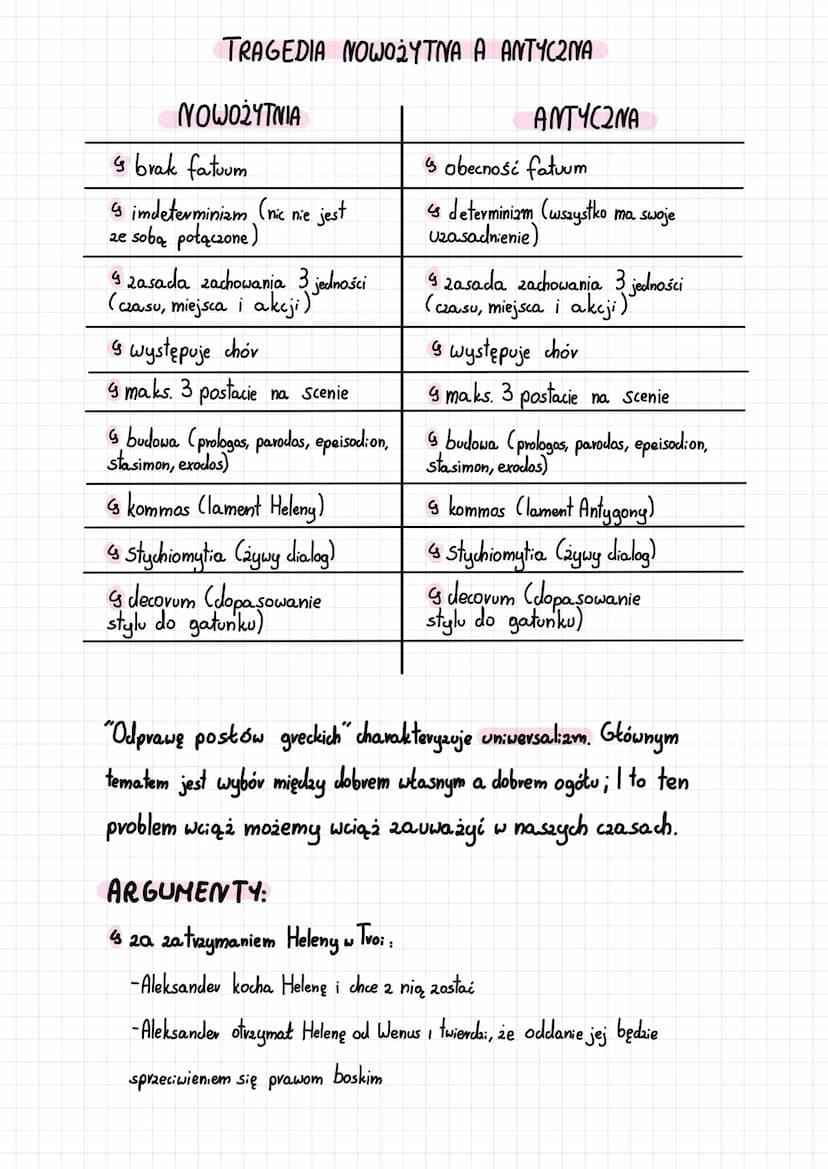 TRAGEDIA NOWOŻYTNA A ANTYCZNA
NOWOŻYTNIA
ANTYCZNA
↳ brak fatuum
↳ obecność fatuum
↳ indeterminizm (nic nie jest
ze sobą połączone)
↳ determinizm (wszystko ma swoje
uzasadnienie)
↳ zasada zachowania 3 jedności
(czasu, miejsca i akcji)
↳ zasada zachowania 3 jedności
(czasu, miejsca i akcji)
↳ występuje chór
↳ występuje chór
↳ maks. 3 postacie na scenie
↳ maks. 3 postacie na scenie
↳ budowa (prologos, parodos, epeisodion,
stasimon, exodos)
↳ budowa (prologos, parodos, epeisodion,
stasimon, exodos)
↳ kommos (lament Heleny)
↳ kommos (lament Antygony)
↳ stychiomytia (żywy dialog)
↳ stychiomytia (żywy dialog)
↳ decorum (dopasowanie
stylu do gatunku)
↳ decorum (dopasowanie
stylu do gatunku)
"Odprawę posłów greckich" charakteryzuje uniwersalizm. Głównym
tematem jest wybór między dobrem własnym a dobrem ogółu; I to ten
problem wciąż możemy wciąż zauważyć w naszych czasach.
ARGUMENTY:
↳ za zatrzymaniem Heleny w Troi:
-Aleksander kocha Helenę i chce z nią zostać
-Aleksander otrzymał Helenę od Wenus i twierdzi, że oddanie jej będzie
sprzeciwieniem się prawom boskim